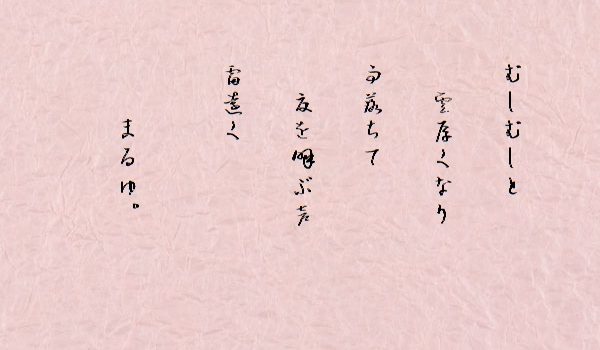 むしむしと
雲厚くなり
雨落ちて
夜を呼ぶ音
雷遠く
まるゆ。